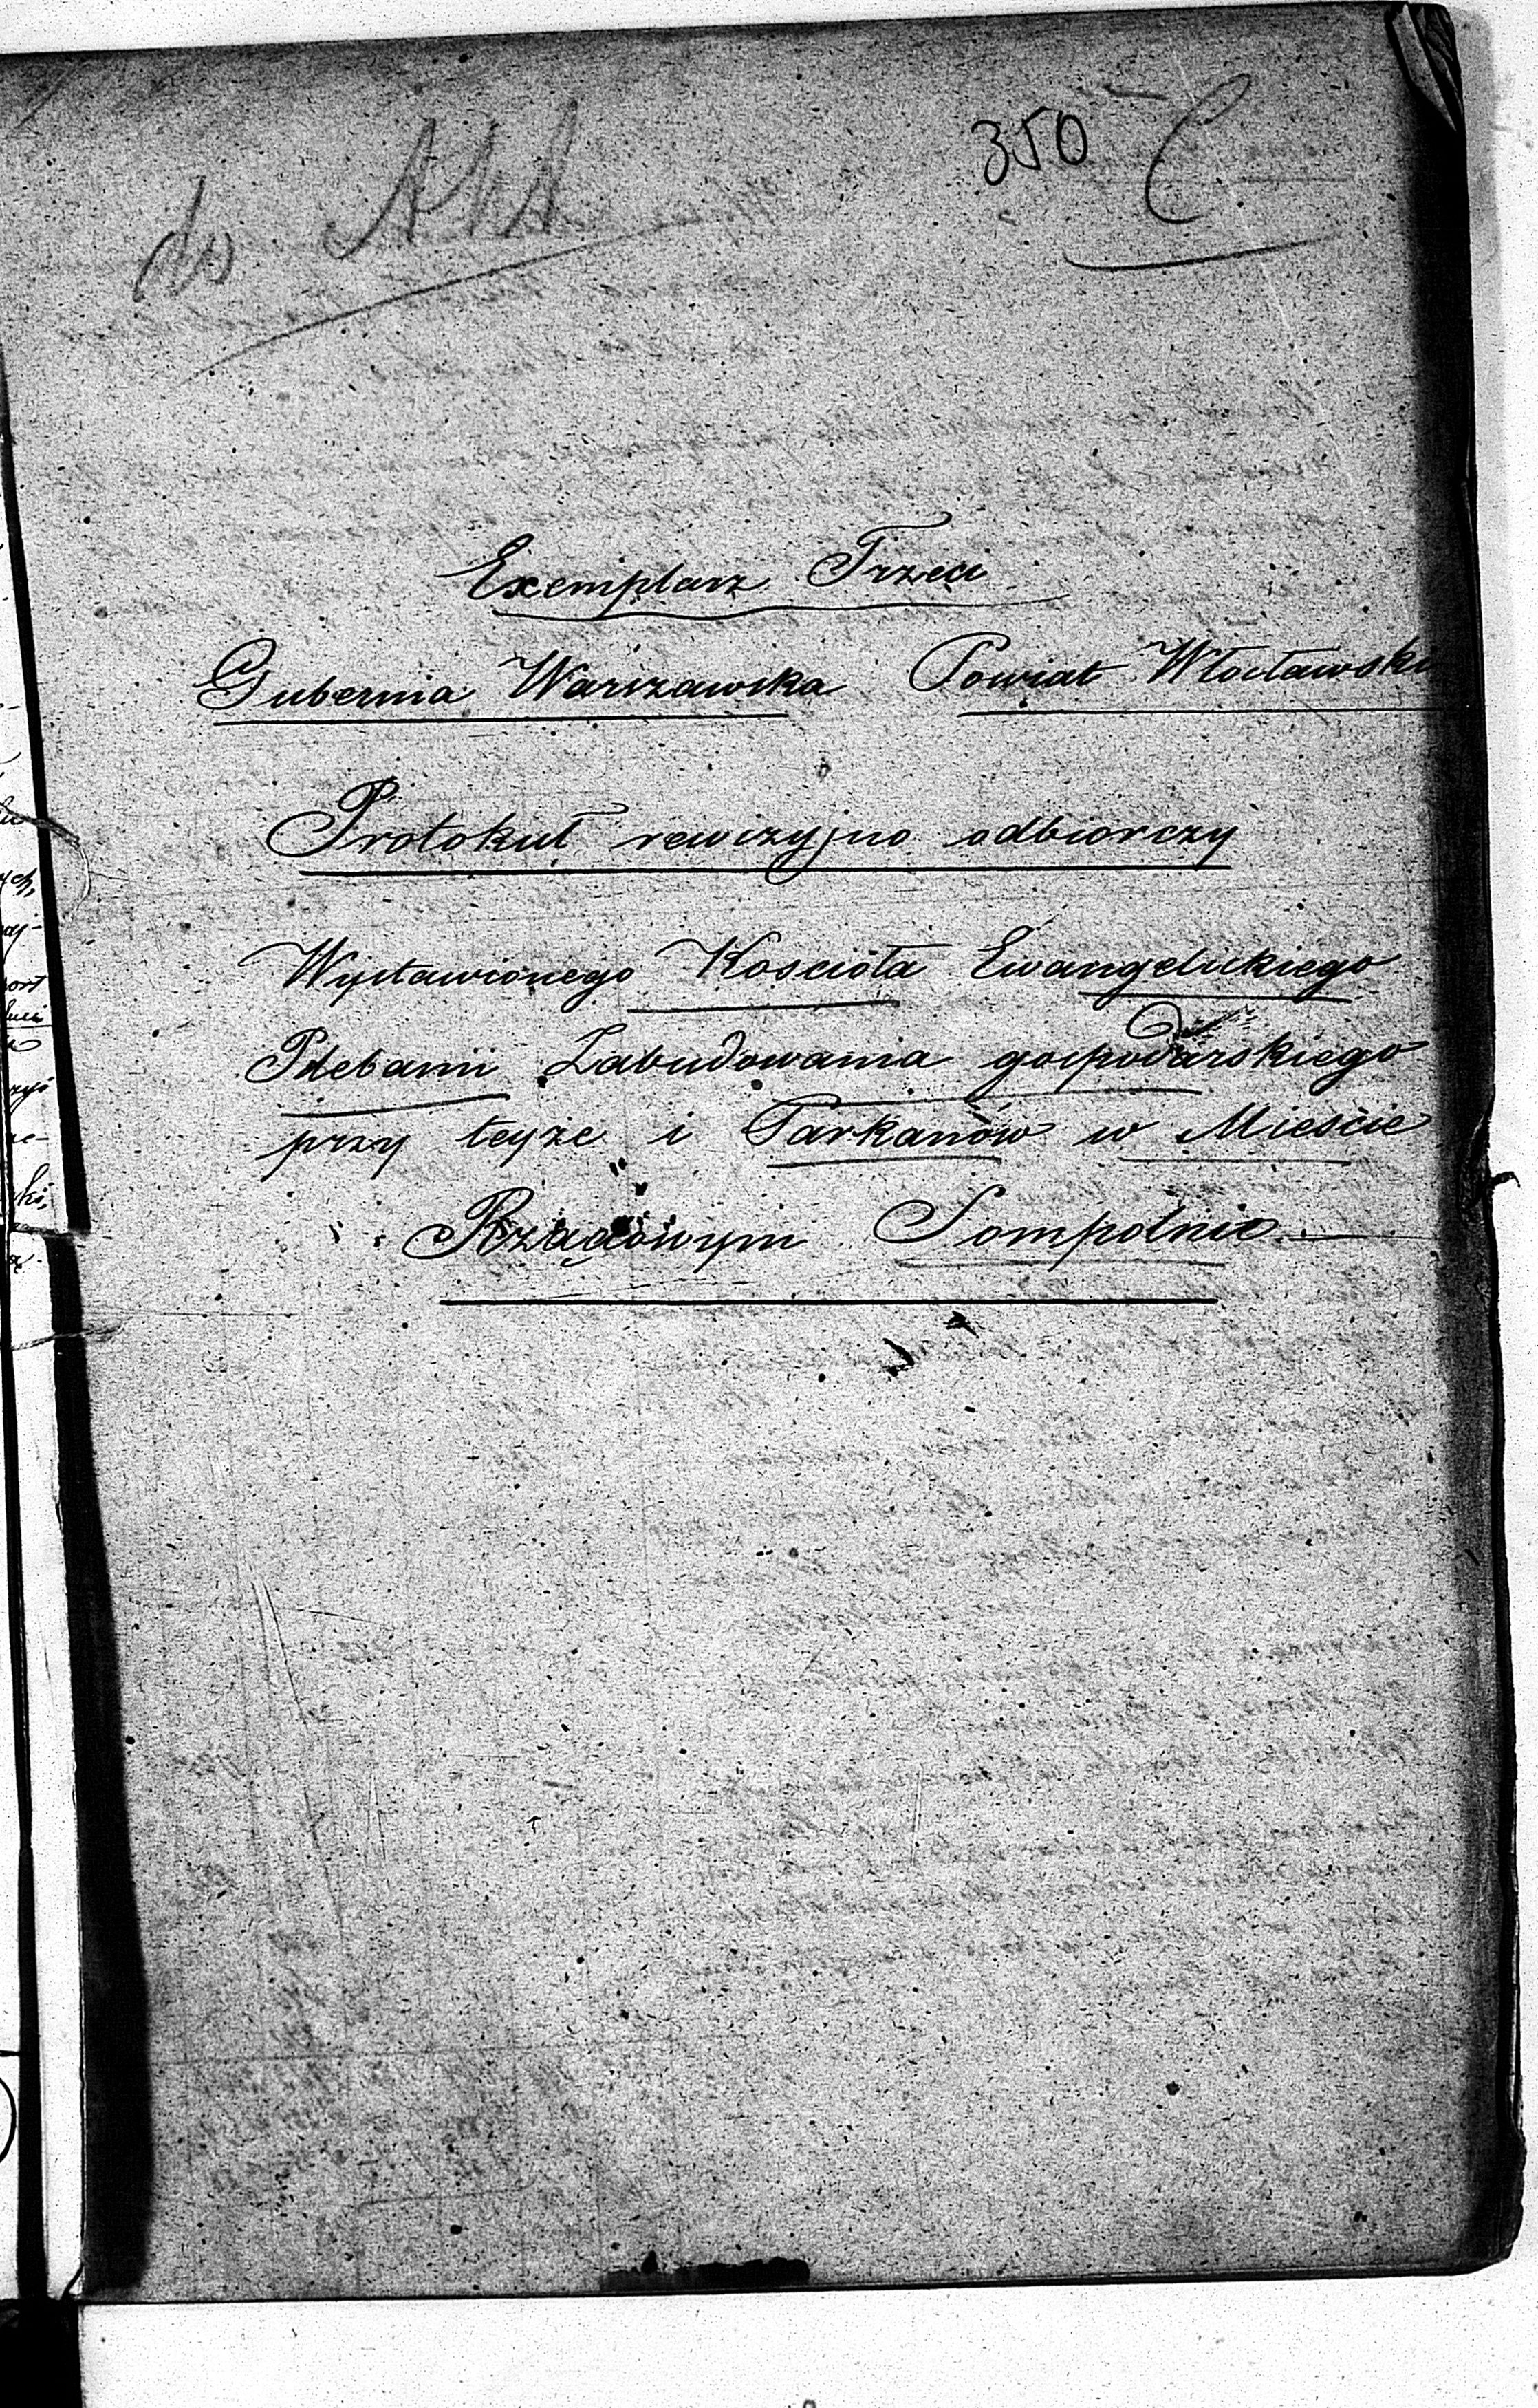 350 C
do Akt
Exemplarz Trzeci
Gubernia Warszawska Powiat Włocławski
Protokuł rewizyjno odbiorczy
Wystawionego Kościoła Ewangelickiego
Plebanii Zabudowania gospodarskiego
przy teyże i Parkanów w Mieście
Rządowym Sompolnie